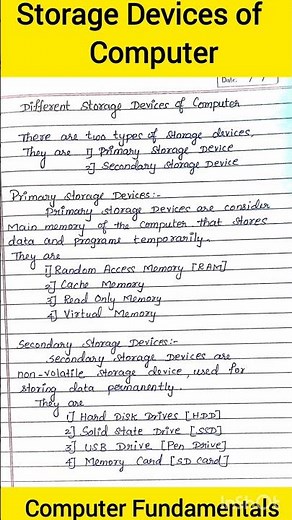 Storage Devices of
Computer
Date: / /
Different Storage Devices of Computer
There are two types of storage devices.
They are 1] Primary Storage Device
2] Secondary Storage Device
Primary Storage Devices:-
Primary storage Devices are consider
Main memory of the Computer that stores
data and programs temporarily.
They are
1] Random Access Memory [RAM]
2] Cache Memory
3] Read Only Memory
4] Virtual Memory
Secondary Storage Devices:-
Secondary Storage Devices are
non-volatile storage device, used for
storing data permanently.
They are
1] Hard Disk Drives [HDD]
2] Solid State Drive [SSD]
3] USB Drive [Pen Drive]
4] Memory Card [SD Card]
InShot
Computer Fundamentals